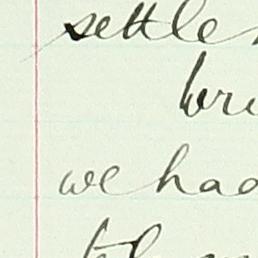 settle
bri
we had